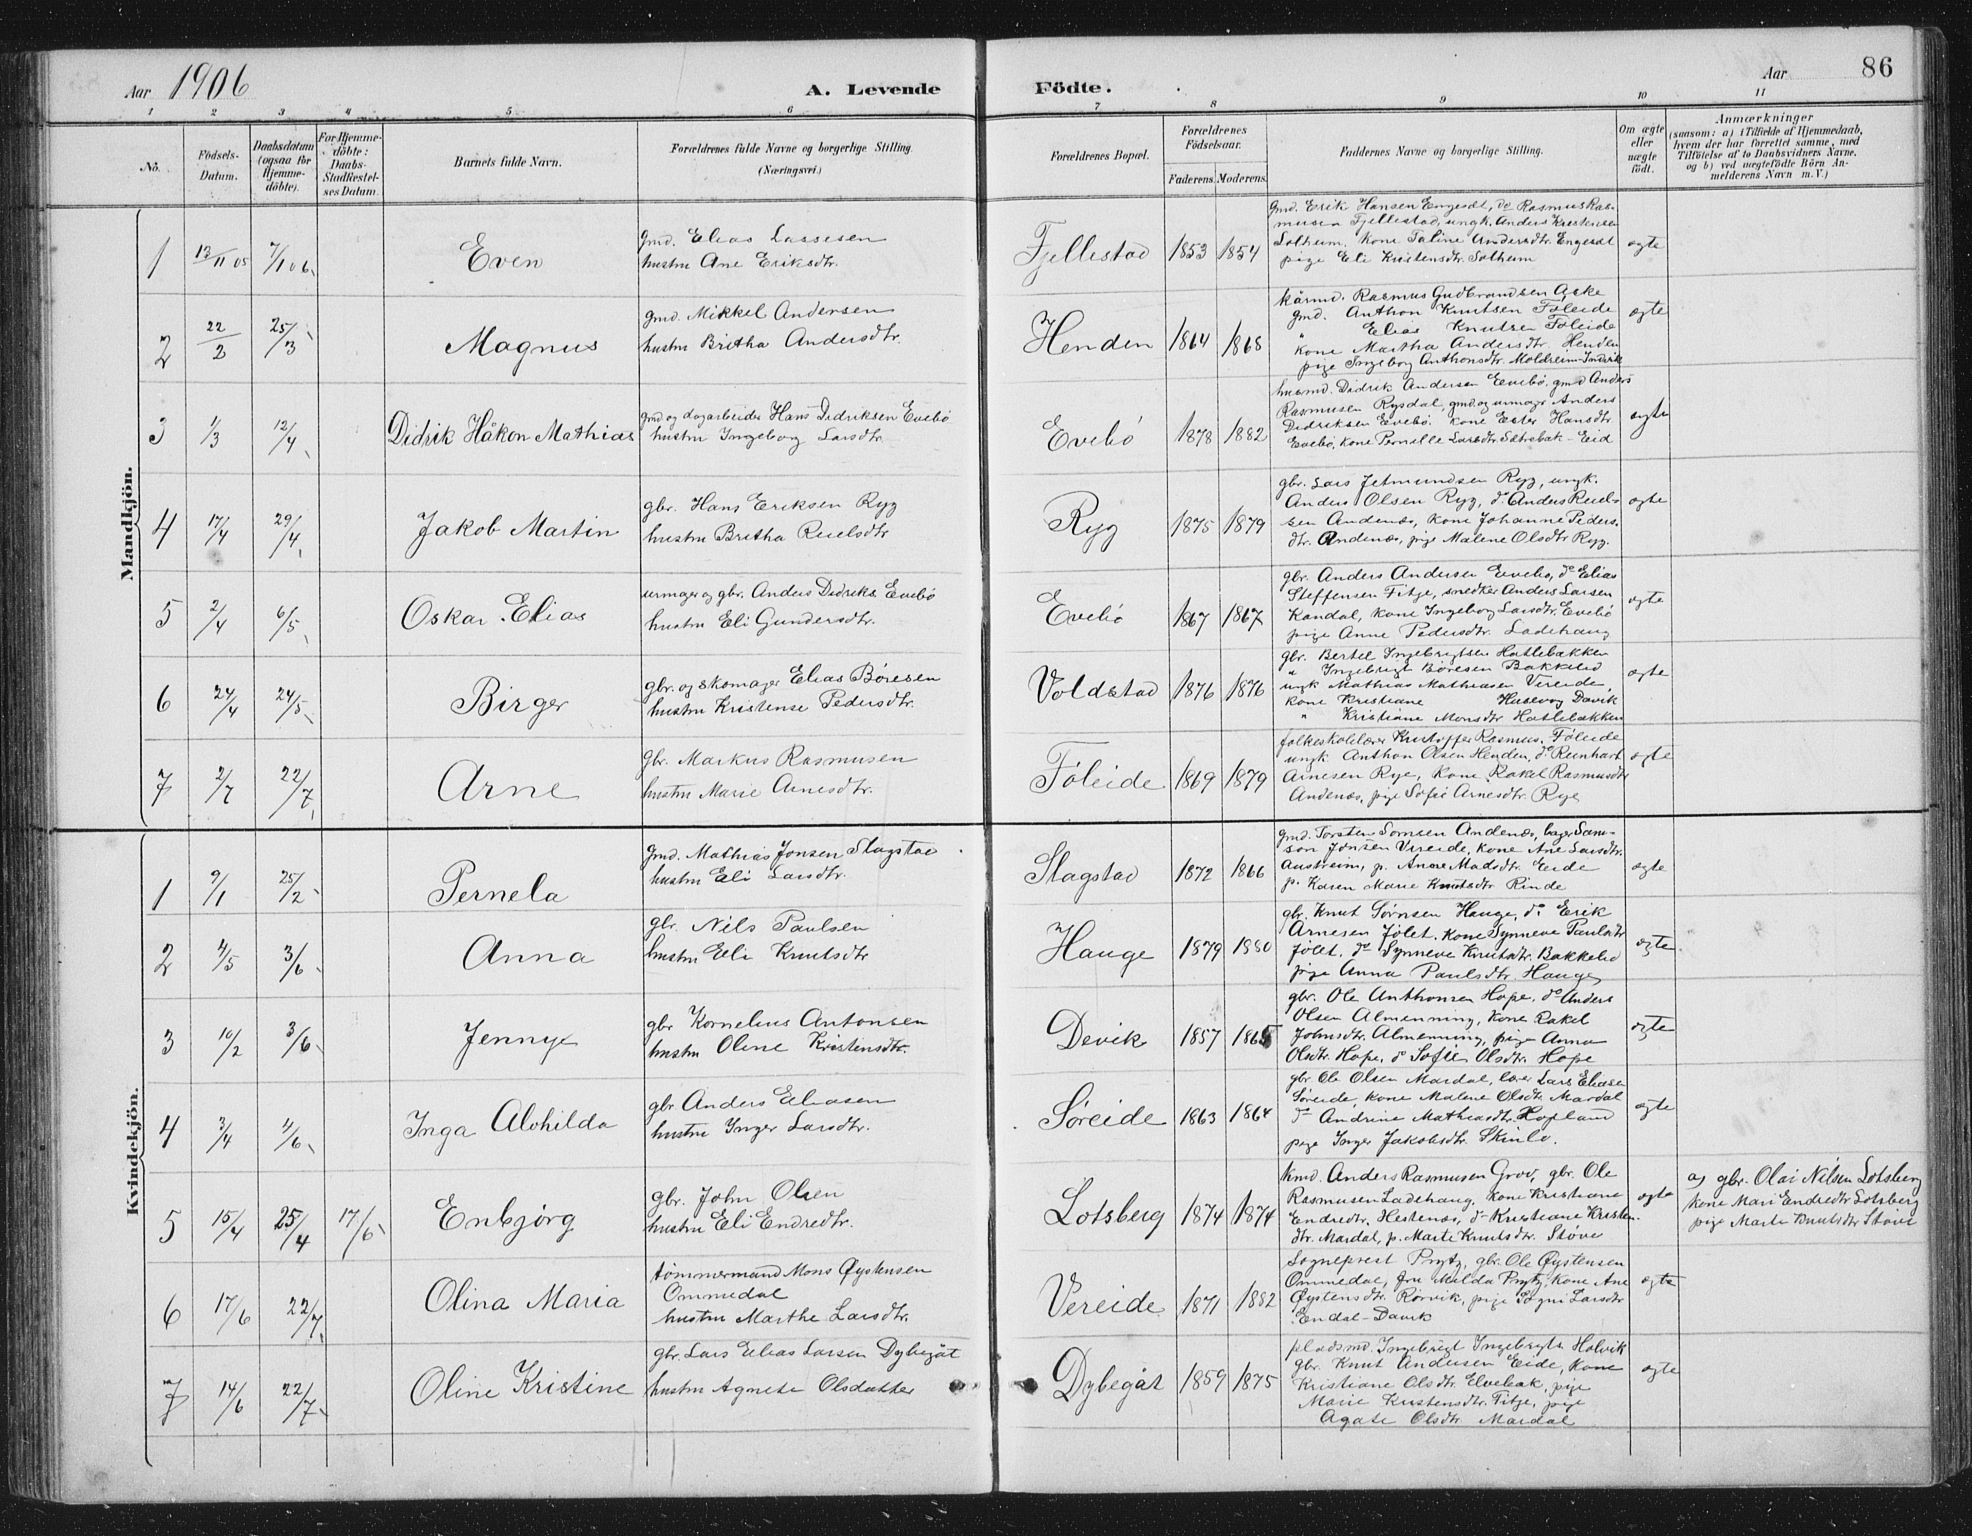 Aar 1906
A. Levende Födte.
Aar
86
1 2 3 4 5 6 7 8 9 10 11
No.
Födsels-Datum.
Daabsdatum (ogsaa for Hjemme-döbte).
For Hjemme-döbte: Daabs-Stadfæstel-ses Datum.
Barnets fulde Navn.
Forældrenes fulde Navne og borgerlige Stilling.
(Næringsvei.)
Forældrenes Bopæl.
Forældrenes Födselsaar.
Faderens. Moderens.
Faddernes Navne og borgerlige Stilling.
Om ægte eller uægte födt.
Anmærkninger
(saasom: a) i Tilfælde af Hjemmedaab,
hvem der har forrettet samme, med
Tilföielse af to Daabsvidners Navne,
og b) ved uægtefödte Börn An-
melderens Navn m. V.)
Mandkjön.
1 13/11 05 7/1 06. Even
gmd. Elias Lassesen
hustru Ane Eriksdtr.
Fjellestad 1853 1854
gmd. Erik Hansen Engesæt, do Rasmus Ras-
musen Fjellestad, ungk. Anders Kristensen
Solheim, kone Taline Andersdtr. Engesæt
pige Eli Kristensdtr. Solheim
ægte
2 22/2 25/3 Magnus
gmd. Mikkel Andersen
hustru Britha Andersdtr.
Henden 1864 1868
kårmd. Rasmus Gudbrandsen Aske
gmd. Anthon Knutsen Föleide
" Elias Knutsen Föleide
kone Martha Andersdtr. Henden
pige Ingeborg Anthonsdtr. Moldreim-Indvik
ægte
3 1/3 12/4 Didrik Håkon Mathias
gmd og dagarbeider Hans Didriksen Evebø
hustru Ingeborg Larsdtr.
Evebø 1878 1882
husmd. Didrik Andersen Evebø, gmd Anders
Rasmusen Rysdal, gmd. og urmager Anders
Didriksen Evebø. kone Ester Hansdtr
Evebø, kone Pernille Larsdtr Sætrebak - Eid
ægte
4 17/4 29/4 Jakob Martin
gbr. Hans Eriksen Ryg
hustru Britha Reielsdtr
Ryg 1875 1879
gbr. Lars Jetmundsen Ryg, ungk.
Anders Olsen Ryg, do Anders Reiel-
sen Andenæs, kone Johanne Peders-
dtr. Andenæs, pige Malene Olsdtr Ryg.
ægte
5 2/4 6/5 Oskar Elias
urmager og gbr. Anders Didriks. Evebø
hustru Eli Gundersdtr.
Evebø 1867 1867
gbr. Anders Andersen Evebø, do Elias
Steffensen Fitje, snedker Anders Larsen
Kandal, kone Ingeborg Larsdtr. Evebø
pige Anne Pedersdtr. Ladehaug
ægte
6 24/4 24/5 Birger
gbr. og skomager Elias Børesen
hustru Kristense Pedersdtr.
Voldstad 1876 1876
gbr. Bertel Ingebrigtsen Hatlebækken
" Ingebrigt Børesen Bakkelid
ungk Mathias Mathiasen Vereide
kone Kristiane Husevog Davik
" Kristiane Monsdtr Hatlebækken
ægte
7 2/7 22/7 Arne
gbr. Markus Rasmusen
hustru Marie Arnesdtr.
Föleide 1869 1879
folkeskolelærer Kristoffer Rasmus. Föleide
ungk. Anthon Olsen Henden, do Reinhart
Arnesen Rye, kone Rakel Rasmusdtr
Andenæs, pige Sofie Arnesdtr. Rye
ægte
Kvindekjön.
1 9/1 25/2 Pernela
gmd. Mathias Jonsen Slagstad
hustru Eli Larsdtr.
Slagstad 1872 1866
gmd. Torsten Sørnsen Andenæs, bager Sam-
son Jonsen Vereide, kone Ane Larsdtr.
Austreim, p. Anne Madsdtr. Eide
p. Karen Marie Knutsdtr Rinde
ægte
2 4/5 3/6 Anna
gbr. Nils Paulsen
hustru Eli Knutsdtr
Hauge 1879 1880
gbr. Knut Sørnsen Hauge, do. Erik
Arnesen Jölet. kone Synneve Paulsdtr
Jölet, do Synneve Knutsdtr. Bakkelid
pige Anna Paulsdtr. Hauge
ægte
3 10/2 3/6 Jennye
gbr Kornelius Antonsen
hustru Oline Kristensdtr.
Devik 1857 1865
gbr. Ole Anthonsen Hope, do Anders
Olsen Almenning, kone Rakel
Johnsdtr. Almenning, pige Anna
Olsdtr. Hope, do Sofie Olsdtr. Hope
ægte
4 3/4 4/6 Inga Alvhilda
gbr Anders Eliasen
hustru Inger Larsdtr.
Søreide 1863 1864
gbr Ole Olsen Mardal, lærer Lars Eliasen
Søreide, kone Malene Olsdtr Mardal
do Andrine Mathiasdtr. Hopland
pige Inger Jakobsdtr. Skinlo.
ægte
5 15/4 25/4 17/6 Enbjørg
gbr. John Olsen
hustru Eli Endredtr.
Lotsberg 1874 1874
kmd. Anders Rasmusen Grov, gbr. Ole
Rasmusen Ladehaug, kone Kristiane
Endredtr. Hestenæs, do Kristiane Kristen-
dtr. Mardal, p. Marte Knutsdtr. Støve
ægte
a) gbr. Olai Nilsen Lotsberg
kone Mari Endredtr Lotsberg
pige Marte Knutsdtr Støve
6 17/6 22/7 Olina Maria
tømmermand Mons Øystensen
Ommedal
hustru Marthe Larsdtr.
Vereide 1871 1882
Sogneprest Prytz, gbr. Ole Øystensen
Ommedal, fru Milda Prytz, kone Ane
Øystensdtr. Rørvik, pige Sogni Larsdtr
Endal - Davik
ægte
7 14/6 22/7 Oline Kristine
gbr. Lars Elias Larsen Dybegåt
hustru Agnete Olsdatter
Dybegåt 1859 1875
pladsmd. Ingebrigt Ingebrigts Holvik
gbr. Knut Andersen Eide, kone
Kristiane Olsdtr. Elvebak, pige
Marie Kristensdtr. Fitje, pige
Agate Olsdtr Mardal
ægte